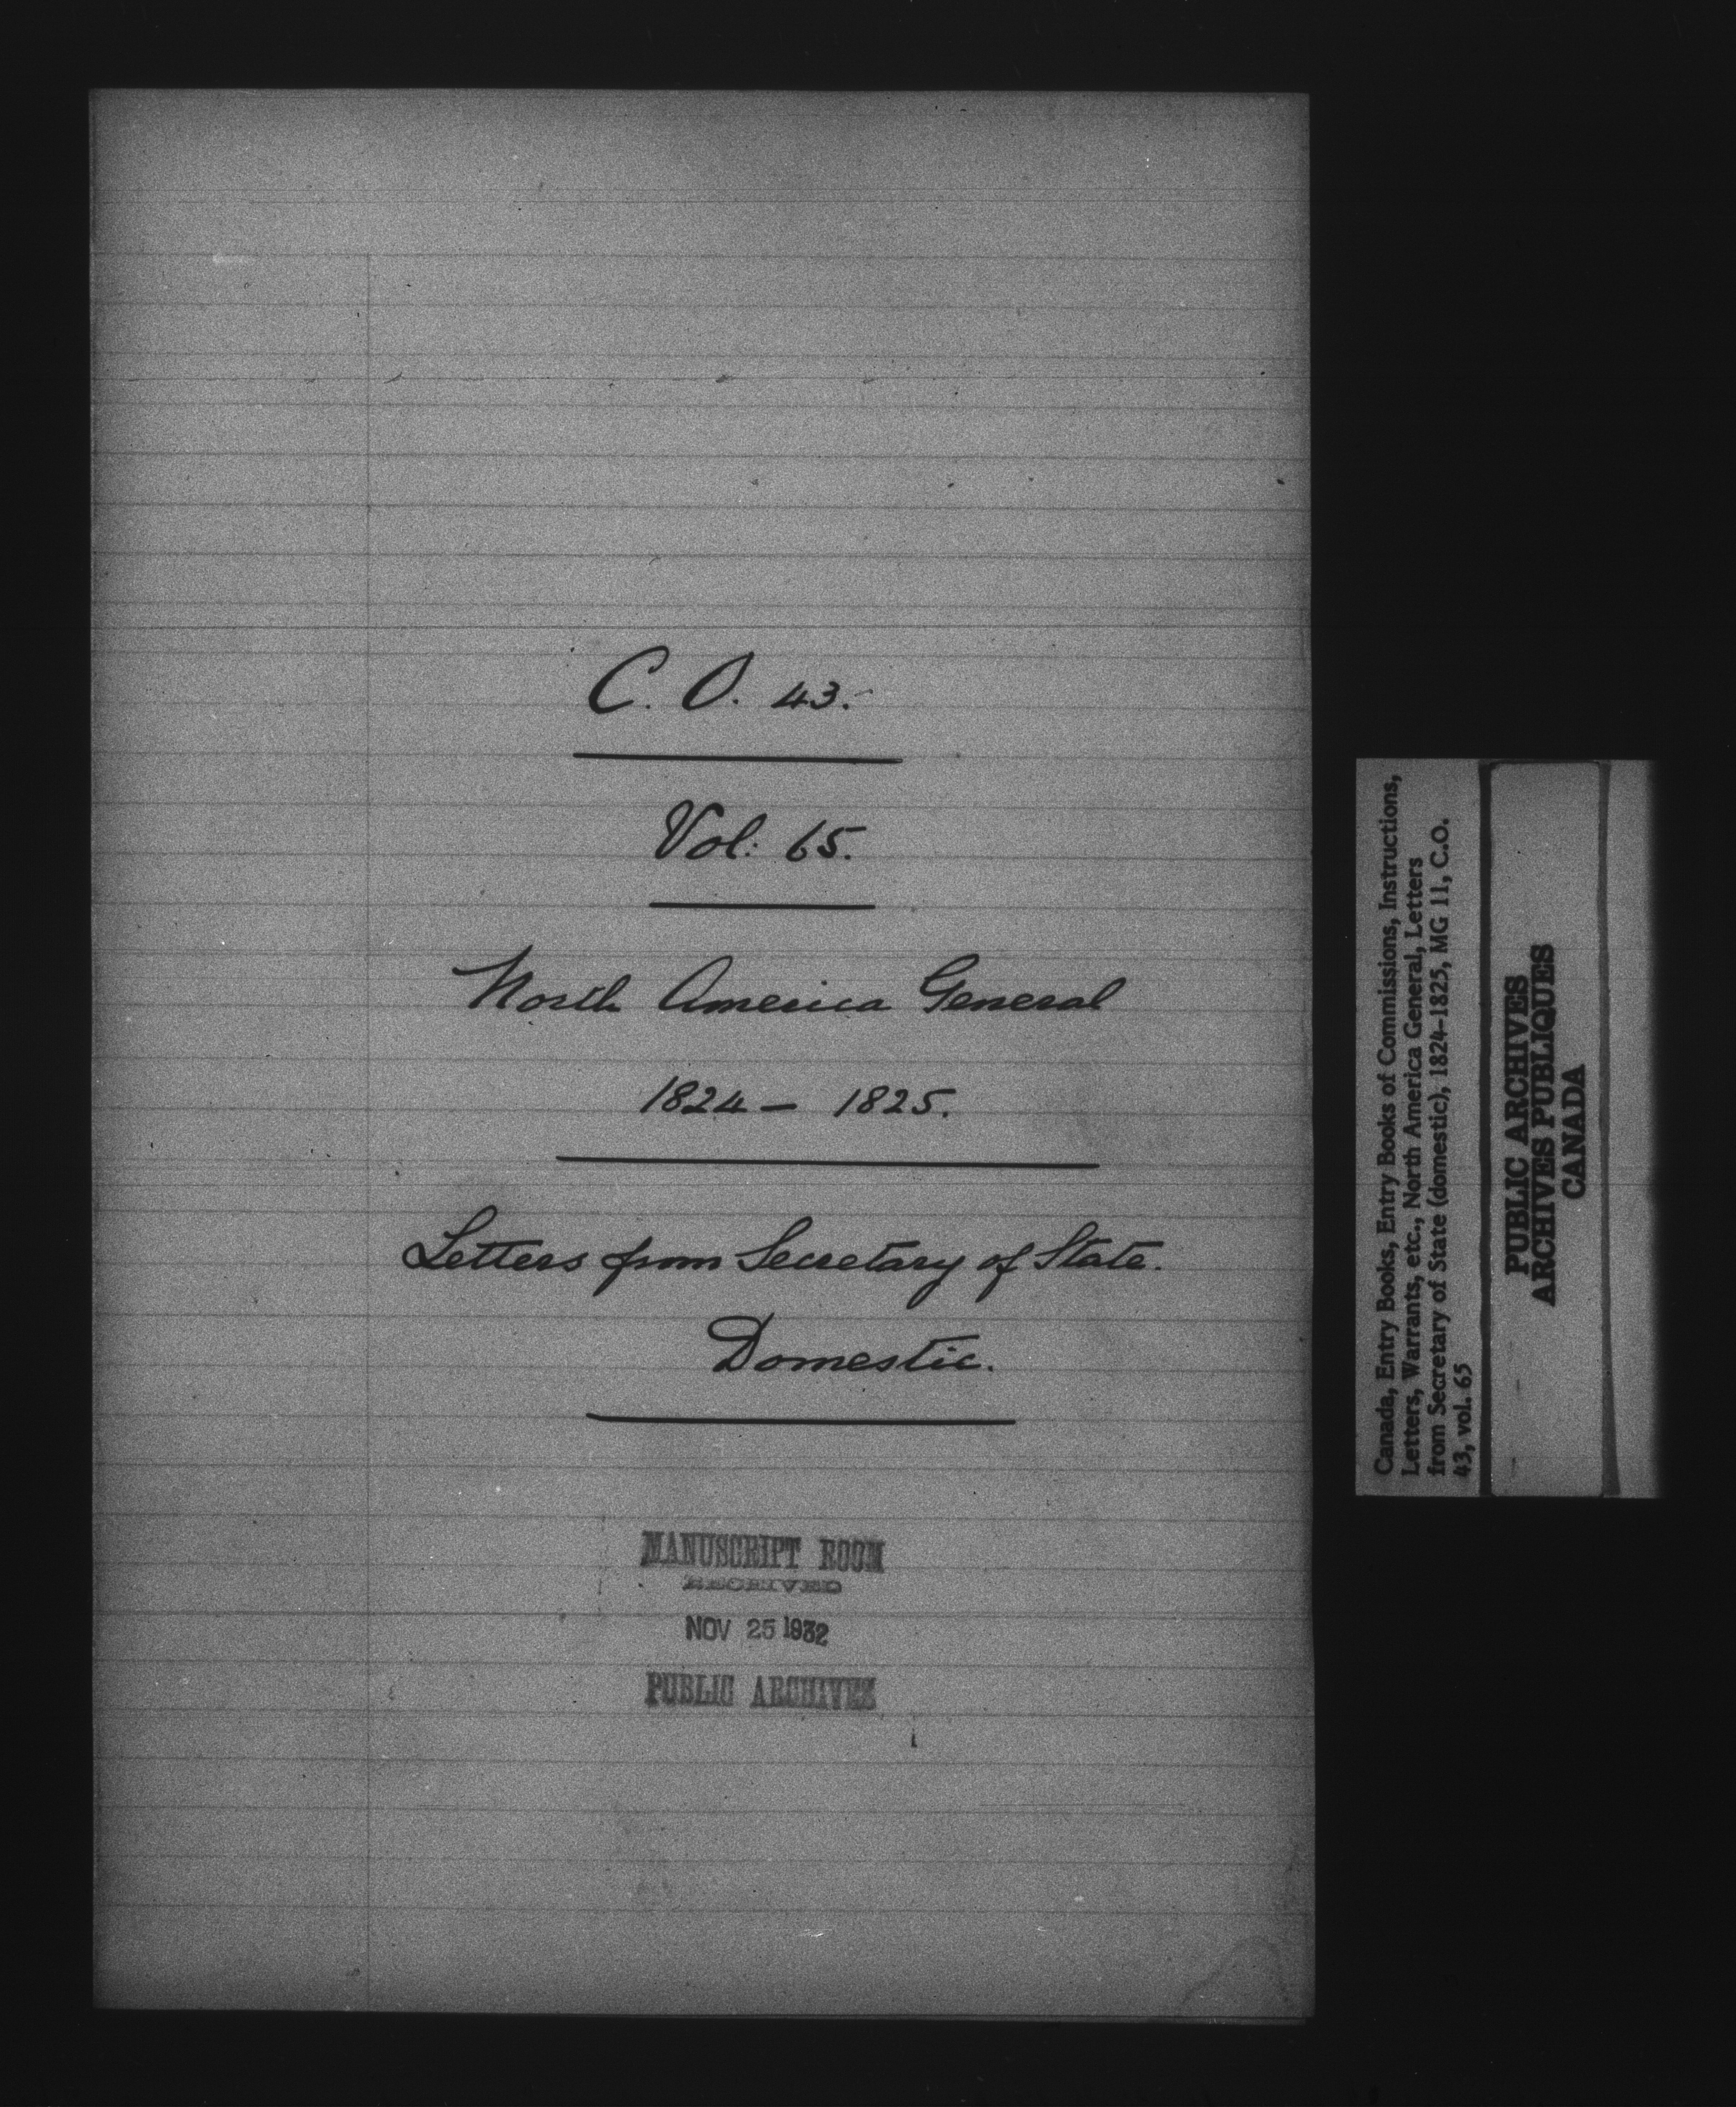 C. O. 43.
Vol: 65.
North America General
1824 – 1825.
Letters from Secretary of State.
Domestic.
MANUSCRIPT ROOM
RECEIVED
NOV 25 1932
PUBLIC ARCHIVES
Canada, Entry Books, Entry Books of Commissions, Instructions,
Letters, Warrants, etc., North America General, Letters
from Secretary of State (domestic), 1824-1825, MG 11, C.O.
43, vol. 65
PUBLIC ARCHIVES
ARCHIVES PUBLIQUES
CANADA